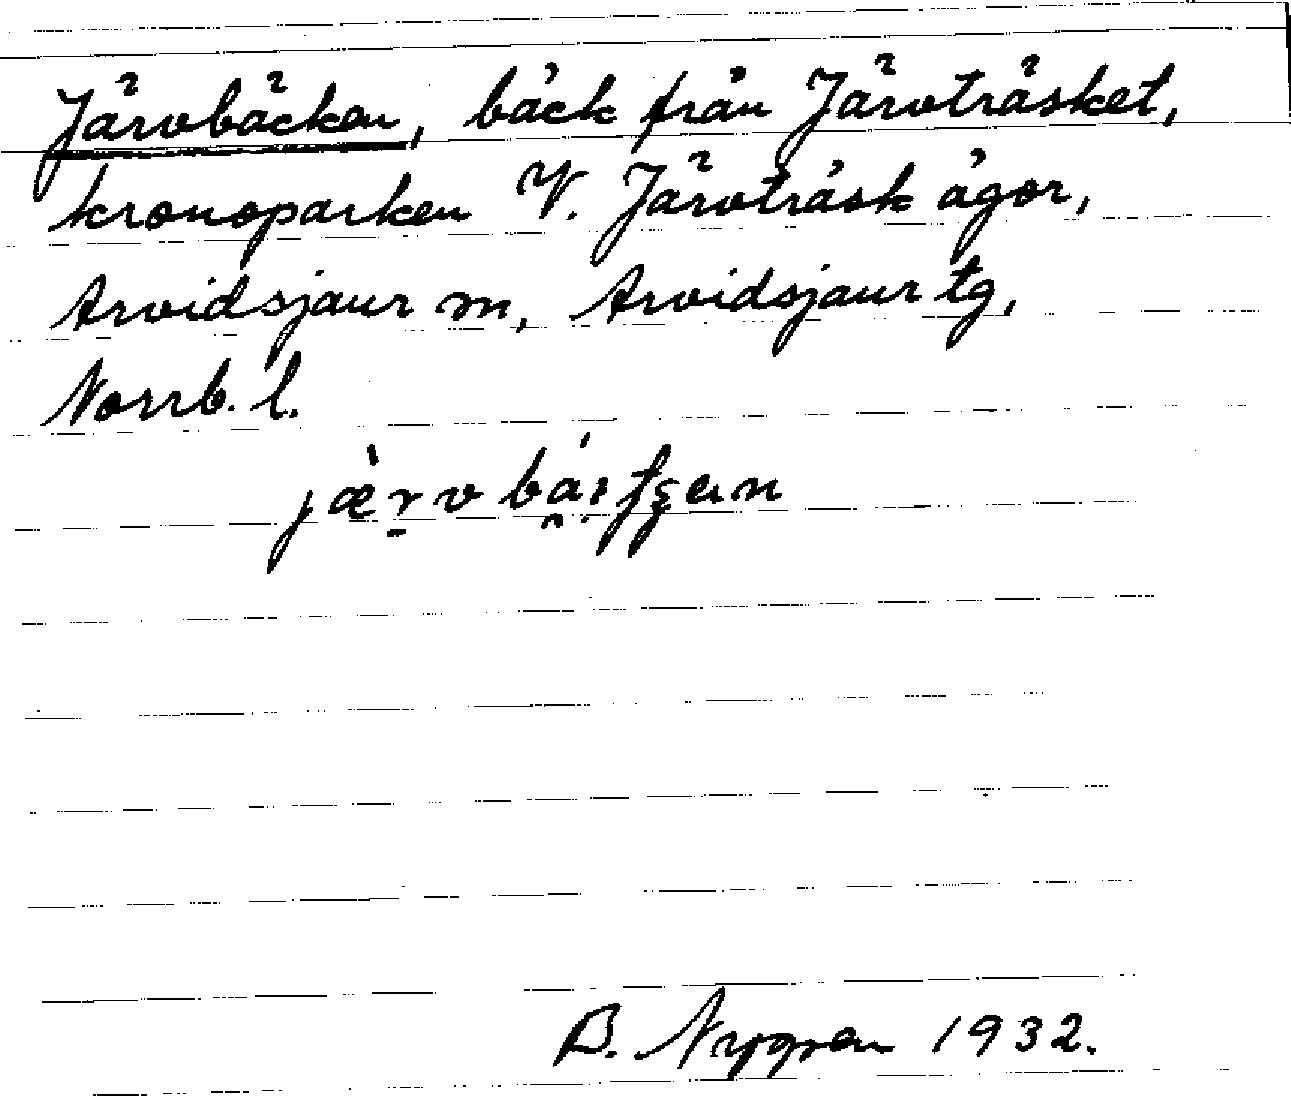 Järvbäcken, bäck från Järvträsket,
kronoparken V. Järvträsk ägor,
Arvidsjaur sn, Arvidsjaur tg,
Norrb. l.
B. Nygren 1932.